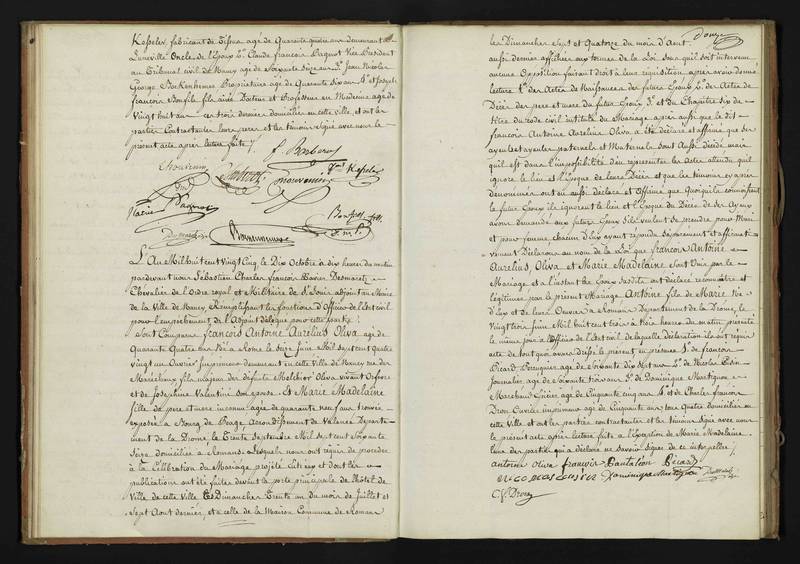 Kesseler, fabricant de Tissus agé de Quarante quatre ans demeurant à
Luneville Oncle de l'Epoux 2° Claude françois Paquot Vice Président
au Tribunal civil de Nancy agé de Soixante Seize ans 3° Jean Nicolas
George Backenheimer Proprietaire agé de Quarante Six ans 4° et Joseph
françois Bonfils fils ainé Docteur et Professeur en Médecine agé de
Vingt huit ans - ces trois derniers domiciliés en cette ville, et ont les
parties Contractantes leurs peres et les témoins signé avec nous le
présent acte après lecture faite /.
Kesseler
Bonfils fils
D. m. P.
L'An Mil huit cent Vingt Cinq, le Dix Octobre à dix heures du matin
pardevant nous Sébastien Charles françois Xavier Desmarets
Chevalier de l'Ordre royal et Militaire de St Louis adjoint au Maire
de la Ville de Nancy Remplissant les fonctions d'Officier de l'Etat civil
pour l'empêchement de l'Adjoint délégué pour cette partie :
Sont Comparus françois Antoine Aurélius Oliva agé de
Quarante Quatre ans Né a Rome le Seize Juin Mil Sept cent Quatre
Vingt un Ouvrier Imprimeur demeurant en cette Ville de Nancy rue des
Maréchaux fils majeur des défunts Melchior Oliva vivant Orfèvre
et de Josephine Valentini Son epouse. Et Marie Madelaine
fille de pere et mere inconnus agée de quarante neuf ans trouvée
exposée a Bourg du Péage Arrondissement de Valence Departe-
ment de la Drome, le Trente Septembre Mil Sept cent Soixante
Seize domiciliée a Romans. Lesquels nous ont requis de proceder
à la Célébration du Mariage projeté entr'eux et dont les
publications ont été faites devant la porte principale de l'hôtel de
Ville de cette Ville Les Dimanches Trente un du mois de Juillet et
Sept Aout dernier, et a celle de la Maison Commune de Romans
Douze
les Dimanches Sept et Quatorze du mois d'Aout
aussi dernier affichées aux termes de la Loi. Sans qu'il soit intervenu
aucune Opposition faisant droit à leur requisition, après avoir donné
lecture 1° des Actes de Naissance des futurs Epoux 2° des Actes de
Décès des pere et mere du futur Epoux 3° et du Chapitre Six du
titre du code civil intitulé du Mariage après aussi que le dit
françois Antoine Aurelius Oliva a été declaré et affirmé que ses
ayeuls et ayeules paternels et Maternels Sont Aussi décédés mais
qu'il est dans l'impossibilité d'en représenter les actes attendu qu'il
ignore le lieu et l'Epoque de leurs Décès et que les témoins ci après
dénommés ont aussi déclaré et Affirmé que Quoiqu'ils connoissent
le futur Epoux ils ignorent le lieu et l'Epoque du Décès de ses Ayeux
avons demandé aux futurs Epoux S'ils veulent se prendre pour Mari
et pour femme chacun d'Eux ayant répondu Séparément et affirmati-
vement Déclarons au nom de la Loi que françois Antoine
Aurelius, Oliva et Marie Madelaine Sont Unis par le
Mariage et a l'instant les Epoux Susdits ont declaré reconnaitre et
legitimer par le présent Mariage Antoine fils de Marie Né
d'Eux et de leurs Oeuvres a Romans Departement de la Drome, le
Vingt trois Juin Mil huit cent trois à trois heures du matin présenté
le même jour à l'Officier de l'Etat civil de laquelle déclaration ils ont requis
acte de tout quoi avons dressé le présent en présence 1° de françois
Picard Perruquier agé de Soixante dix Sept ans 2° de Nicolas
Journalier agé de Soixante trois ans 3° de Dominique Martignon
Marchand Epicier agé de Cinquante cinq ans 4° et de Charles François
Drou Ouvrier imprimeur agé de Cinquante ans tous Quatre domiciliés en
cette Ville et ont les parties contractantes et les témoins Signé avec nous
le présent acte après lecture faite à l'Exception de Marie Madelaine
l'une des parties qui a déclaré ne savoir Signer de ce interpellée /.
Antoine Oliva françois Pantaléon Picard
Dominique Martignon Desmarets
C. f. Drou